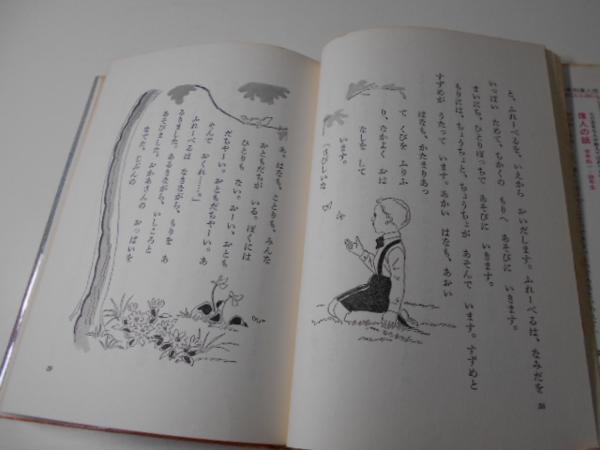 と、ふれーべるを、いえから おいだします。ふれーべるは、なみだを
いっぱい ためて、ちかくの もりへ あそびに いきます。
まいにち、ひとりぼっちで あそびに いきます。
もりには、ちょうちょと、ちょうちょが あそんで います。すずめと
すずめが うたって います。あかい はなも、あおい
はなも、かたまりあっ
て くびを ふりふ
り、なかよく おは
なしを して
います。
「さびしいな
28
あ。はなも、ことりも、みんな
おともだちが いる。ぼくには
ひとりも ない。おーい、おとも
だちやーい。おともだちやーい。あ
そんで おくれ―…。」
ふれーべるは なきながら、もりを あ
るきました。あるきながら、いしころと
あそびました。おかあさんの おっぱいを
すてた、じぶんの
29
偉人の話